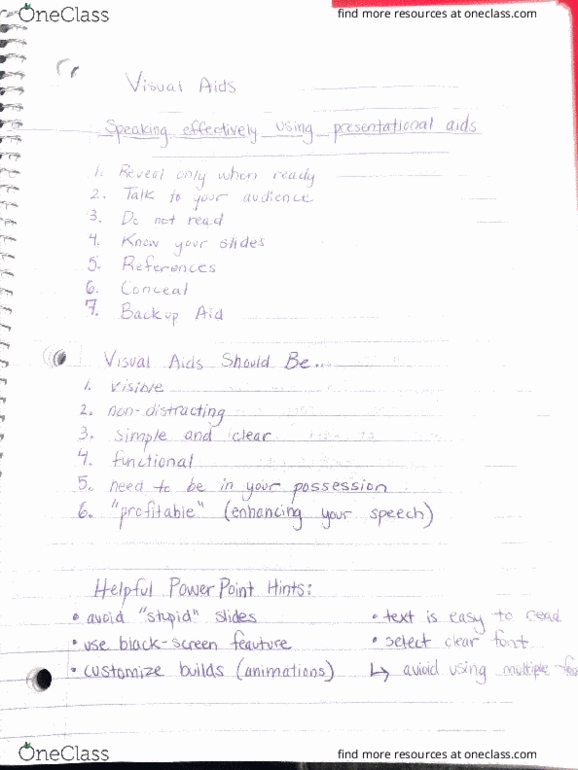 OneClass
find more resources at oneclass.com
Visual Aids
Speaking effectively using presentational aids
1. Reveal only when ready
2. Talk to your audience
3. Do not read
4. Know your slides
5. References
6. Conceal
7. Backup Aid
Visual Aids Should Be...
1. visible
2. non-distracting
3. simple and clear
4. functional
5. need to be in your possession
6. "profitable" (enhancing your speech)
Helpful PowerPoint Hints:
• avoid "stupid" slides
• use black-screen feauture
• customize builds (animations)
• text is easy to read
• select clear font
↳ aviod using multiple
OneClass
find more resources at oneclass.com